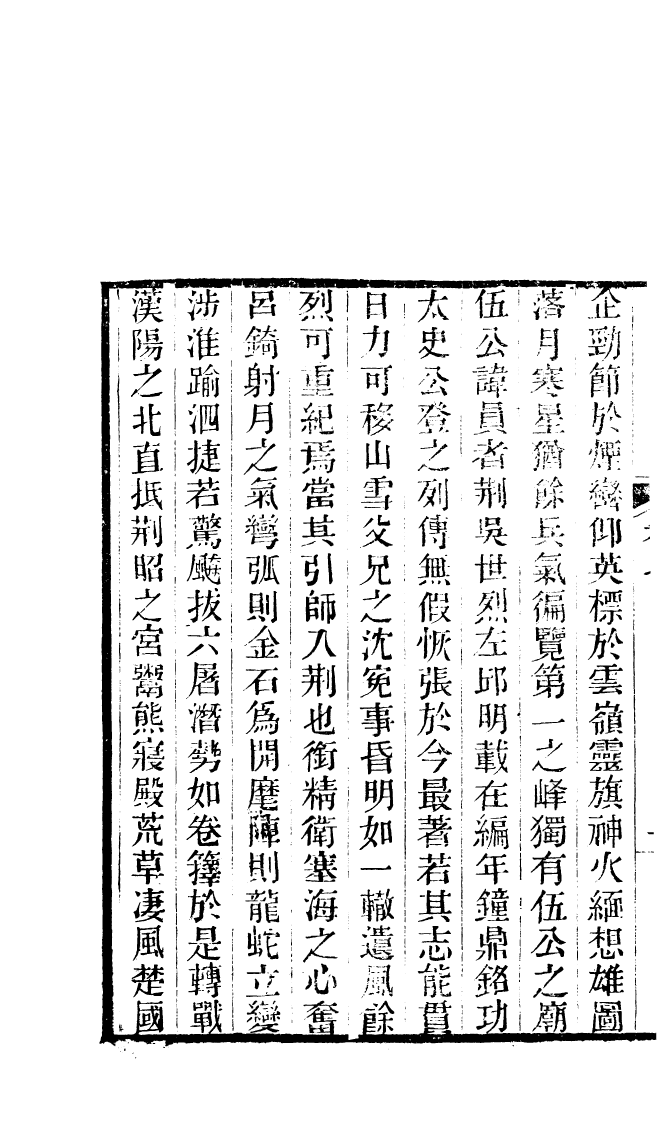 企勁節於煙巒仰英標於雲嶺靈旗神火緬想雄圖
落月寒星猶餘兵氣徧覽第一之峰獨有伍公之廟
伍公諱員者荆吳世烈左邱明載在編年鐘鼎銘功
太史公登之列傳無假恢張於今最著若其志能貫
日力可移山雪父兄之沈寃事昏明如一轍遺風餘
烈可重紀焉當其引師入荆也銜精衛塞海之心奮
呂錡射月之氣彎弧則金石爲開麾陣則龍蛇立變
涉淮踰泗捷若驚飈拔六屠潛勢如卷籜於是轉戰
漢陽之北直抵荆昭之宮鬻熊寢殿荒草凄風楚國